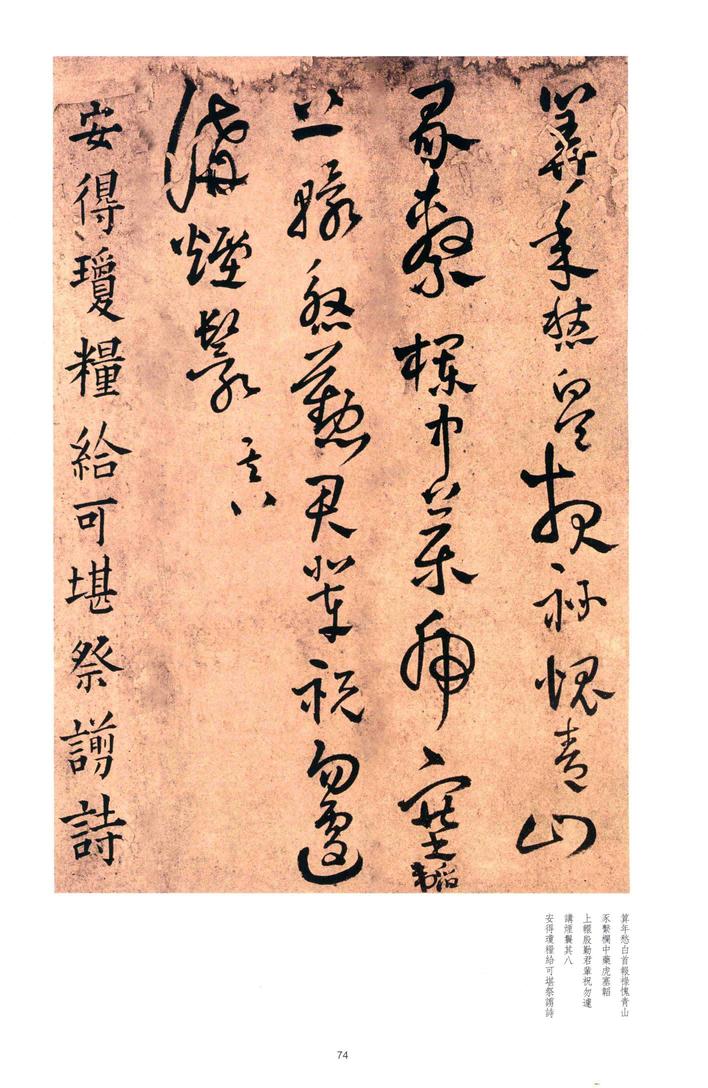 算年愁白首報祿愧青山
豕繫欄中藥虎塞韜
上轘殷勤君輩祝勿遽
講煙鬟其八
安得瓊糧給可堪祭謭詩
算年愁白首報祿愧青山
豕繫欄中藥虎塞韜
上轘殷勤君輩祝勿遽
講煙鬟其八
安得瓊糧給可堪祭謭詩
74